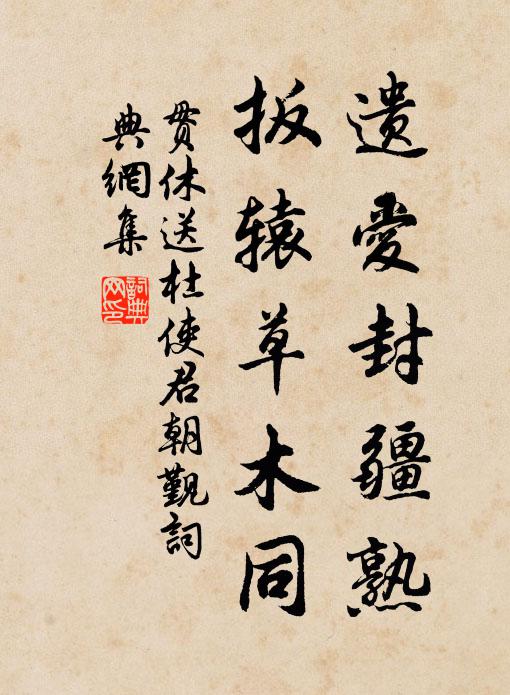 遗爱封疆熟
扳辕草木同
贯休送杜使君朝觐詞
典網集
詞典
网印